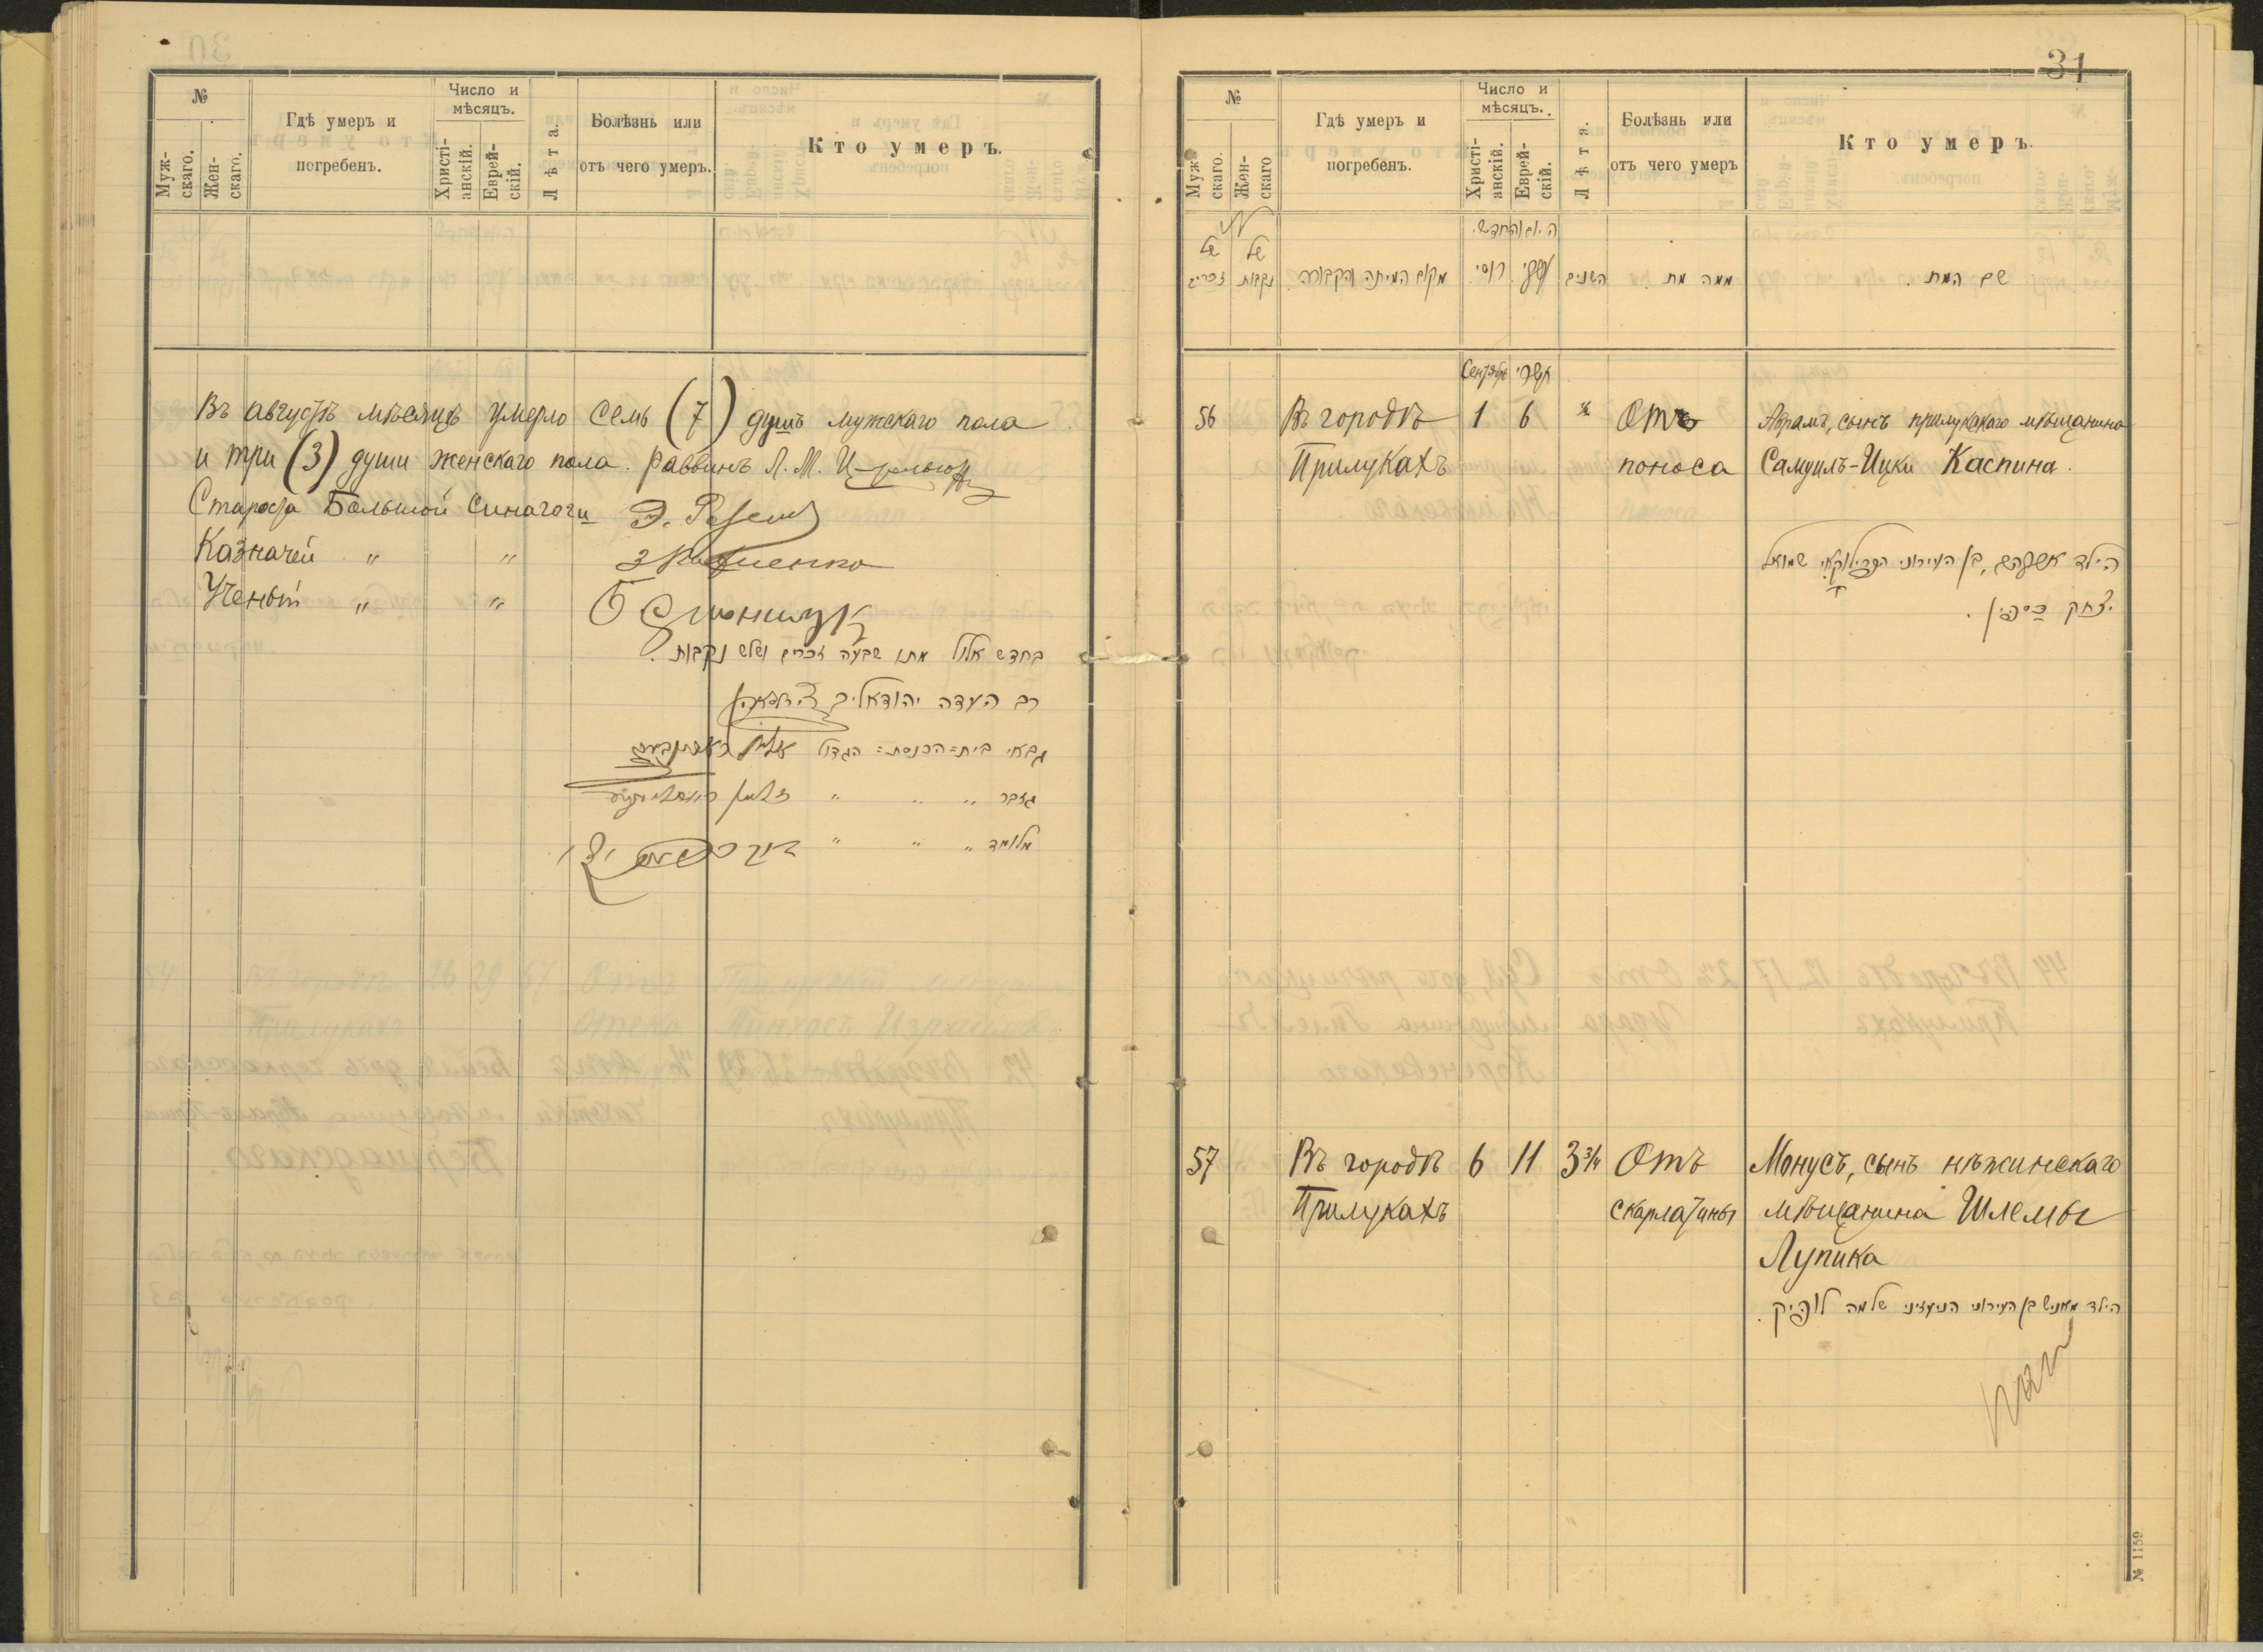 №
Муж-
скаго.
Жен-
скаго.
Гдѣ умеръ и
погребенъ.
Число и
мѣсяцъ.
Христі-
анскій.
Еврей-
скій.
Лѣта.
Болѣзнь или
отъ чего умеръ.
Кто умеръ.
Въ августѣ мѣсяцѣ умерло семь (7) душъ мужскаго пола
и три (3) души женскаго пола. Раввинъ Л. М.
Староста Большой Синагоги
Казначей " "
Ученый " "
בחדש אלול מתו שבעה זכרים ושלש נקבות.
רב העדה
גבאי בית=הכנסת= הגדול
גזבר " " "
מלומד " " "
31
№
Муж-
скаго.
Жен-
скаго
Гдѣ умеръ и
погребенъ.
Число и
мѣсяцъ.
Христі-
анскій.
Еврей-
скій.
Лѣта.
Болѣзнь или
отъ чего умеръ
Кто умеръ.
היום והחדש.
של זכרים
של נקבות
מקום המיתה והקבורה
רוסי
השנים
ממה מת
שם המת.
Сентябрь תשרי
56 Въ городѣ 1 6 ½ Отъ Абрамъ, сынъ прилукскаго мѣщанина
Прилукахъ поноса Самуилъ-Ицки Каспина.
הילד אברהם, בן העירוני הפרילוקאי שמואל
יצחק כספין.
57 Въ городѣ 6 11 3¾ Отъ Монусъ, сынъ нѣжинскаго
Прилукахъ скарлатины мѣщанина Шлемы
Лупика
הילד מאניש בן העירוני הניעזיני שלמה לופיק.
№ 1159.